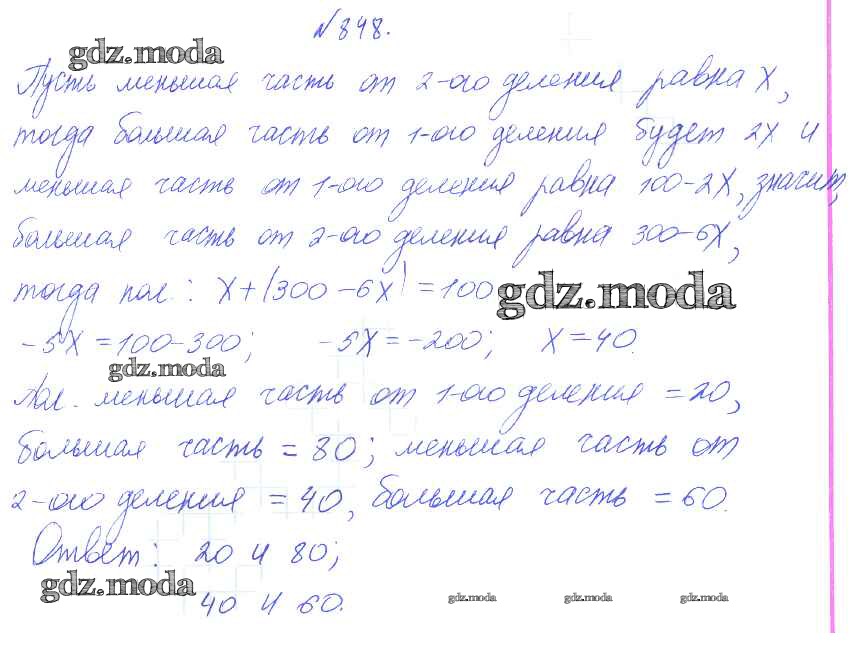 №848.
gdz.moda
Пусть меньшая часть от 2-ого деления равна x,
тогда большая часть от 1-ого деления будет 2x и
меньшая часть от 1-ого деления равна 100-2x, значит,
большая часть от 2-ого деления равна 300-6x,
тогда пол.: x+(300-6x)=100
gdz.moda
-5x=100-300; -5x=-200; x=40.
gdz.moda
Пол. меньшая часть от 1-ого деления =20,
большая часть = 80; меньшая часть от
2-ого деления = 40, большая часть = 60.
Ответ: 20 и 80;
gdz.moda
40 и 60.
gdz.moda gdz.moda gdz.moda